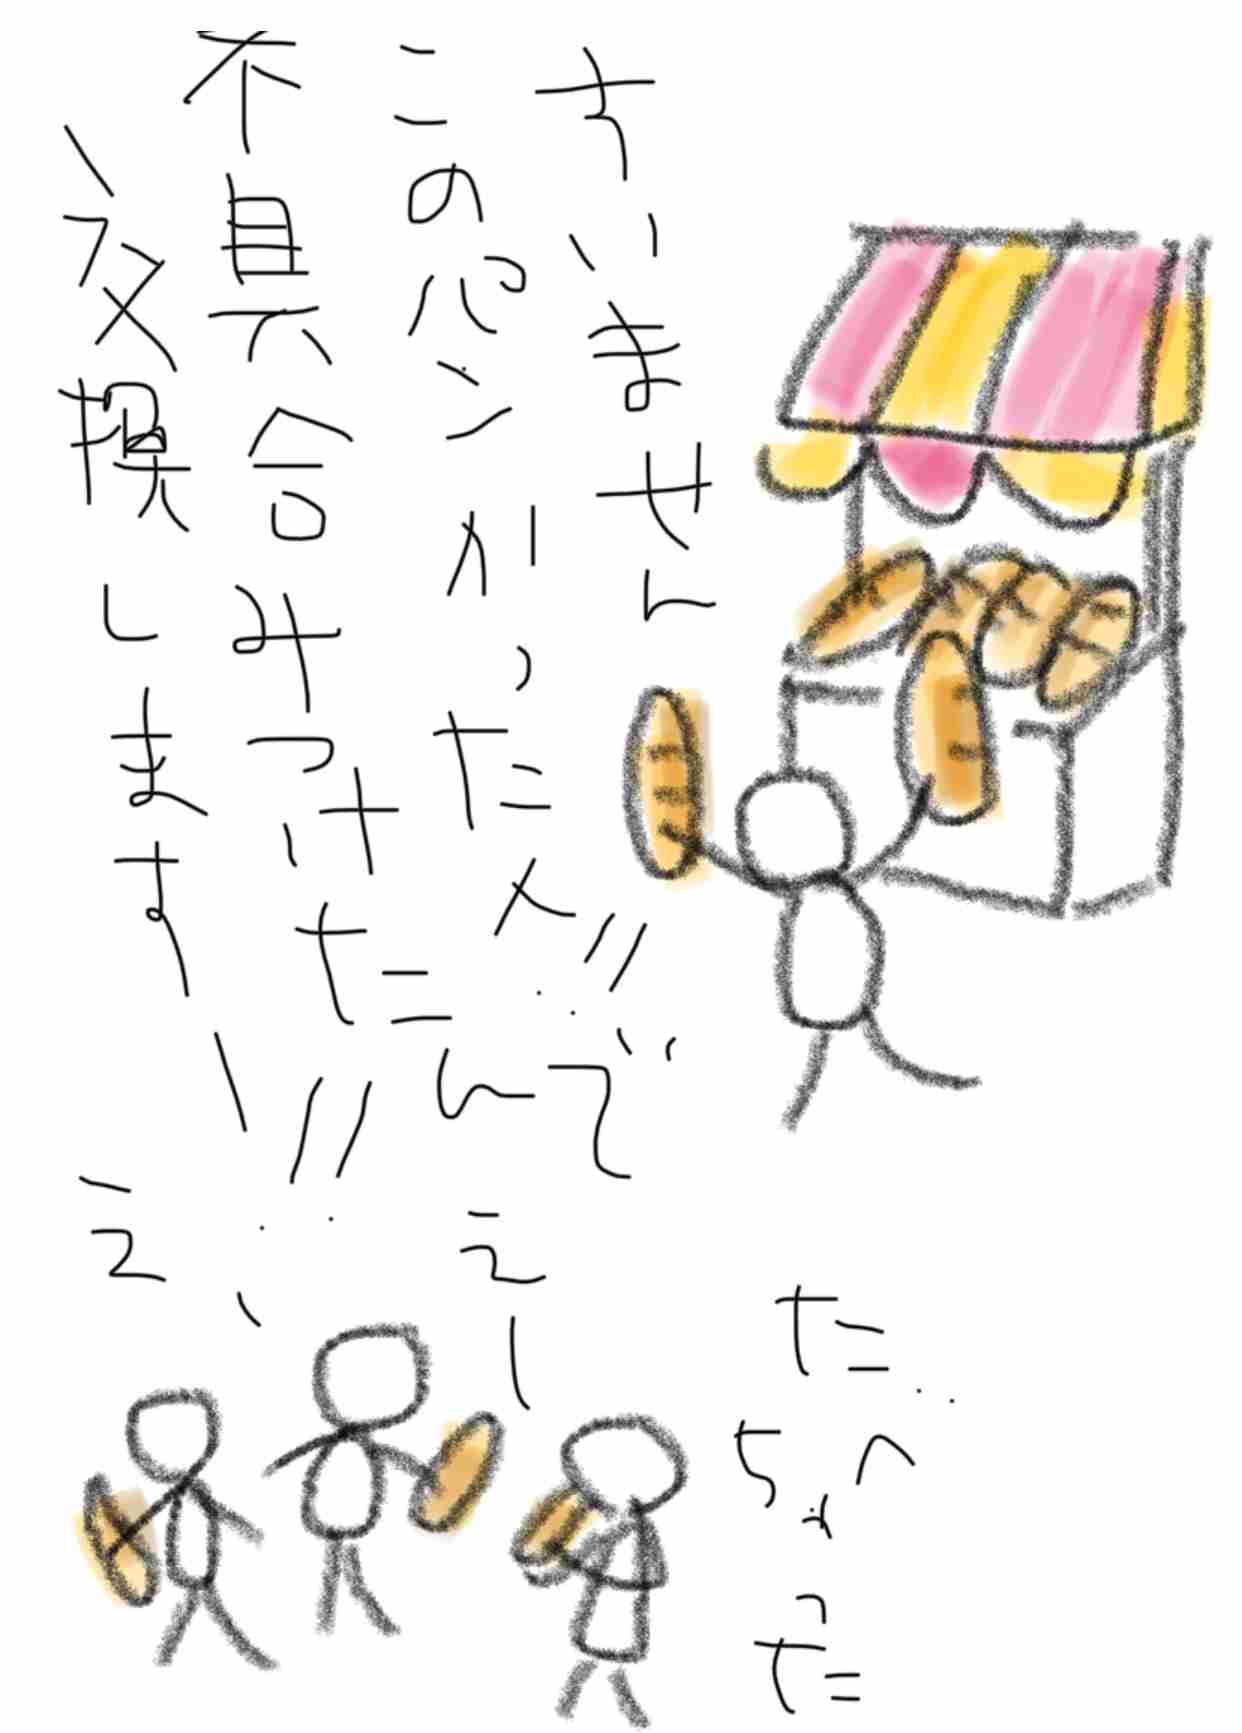 すいません
このパンかった人!!
不具合みつけたんで
交換します!!
たべちゃった
えー
え、